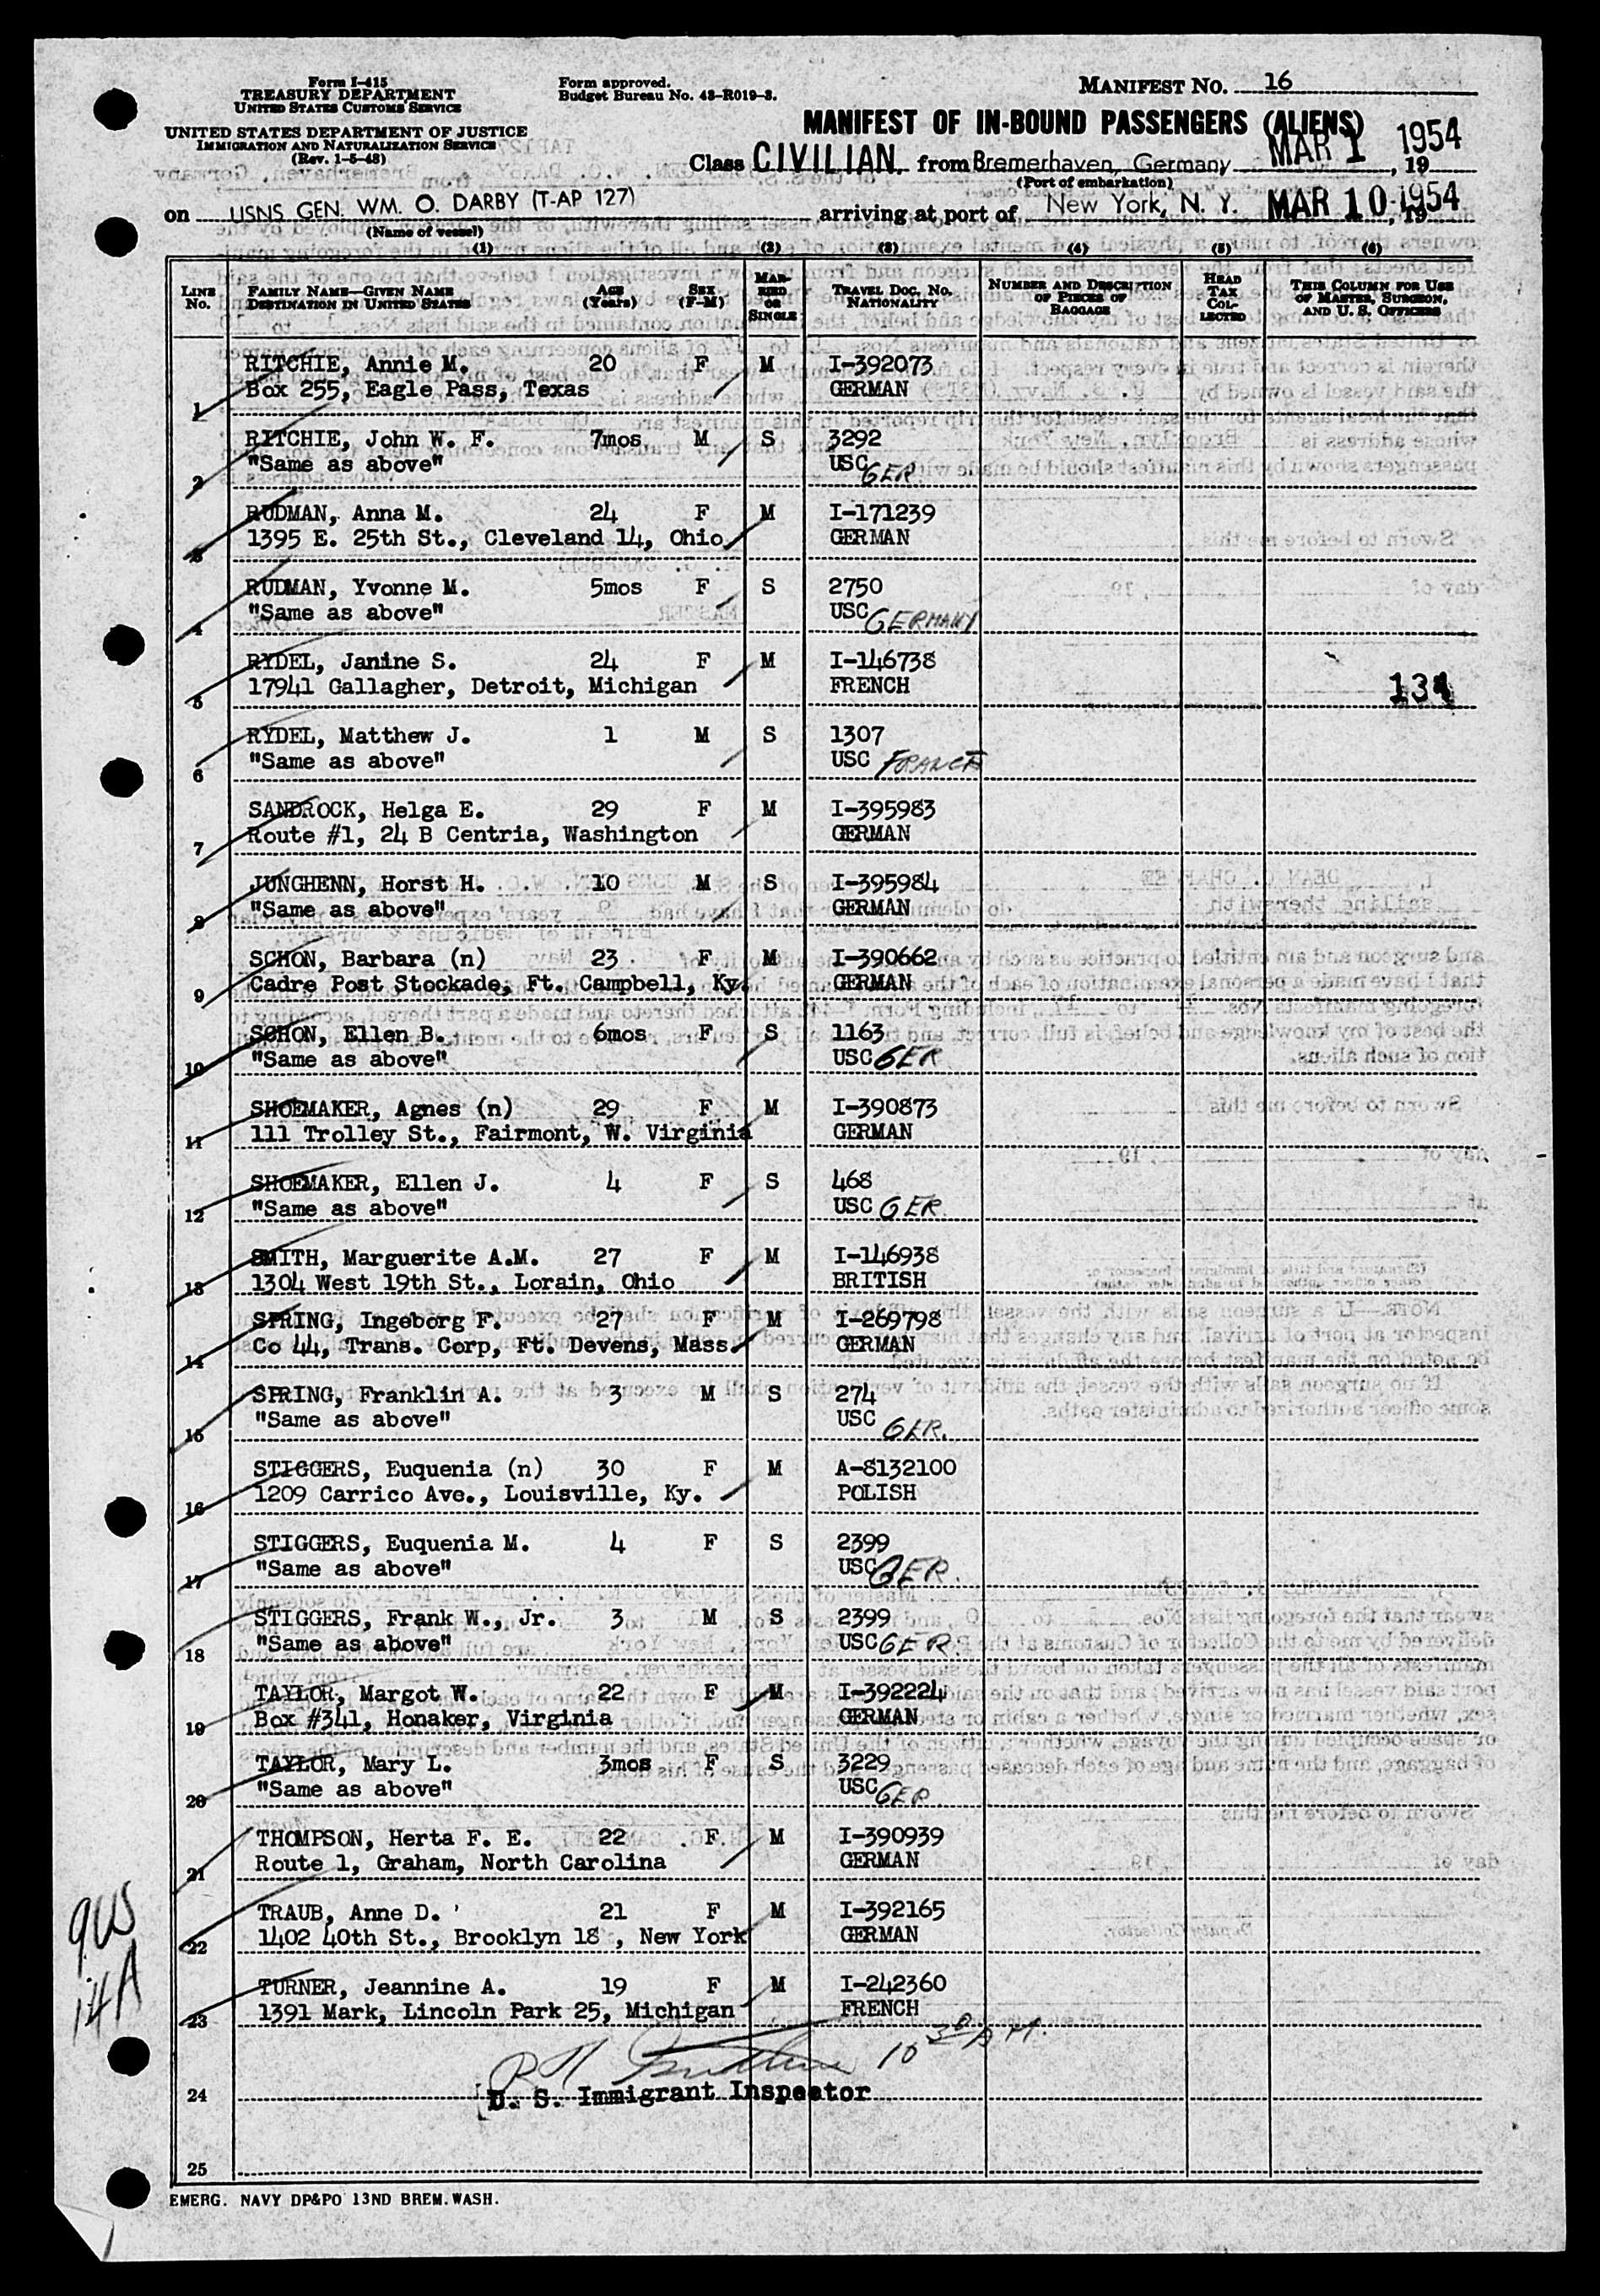 Form I-415
TREASURY DEPARTMENT
UNITED STATES CUSTOMS SERVICE
UNITED STATES DEPARTMENT OF JUSTICE
IMMIGRATION AND NATURALIZATION SERVICE
(Rev. 1-5-48)
Form approved.
Budget Bureau No. 43-R019-3.
MANIFEST NO. 16
MANIFEST OF IN-BOUND PASSENGERS (ALIENS)
Class CIVILIAN from Bremerhaven, Germany MAR 1 1954, 19
(Port of embarkation)
on USNS GEN. WM. O. DARBY (T-AP 127) arriving at port of New York, N. Y. MAR 10 1954, 19
(Name of vessel)
(1) (2) (3) (4) (5) (6)
LINE No. FAMILY NAME—GIVEN NAME DESTINATION IN UNITED STATES AGE (Years) SEX (F-M) MARRIED OR SINGLE TRAVEL DOC. NO. NATIONALITY NUMBER AND DESCRIPTION OF PIECES OF BAGGAGE HEAD TAX COLLECTED THIS COLUMN FOR USE OF MASTER, SURGEON, AND U. S. OFFICERS
RITCHIE, Annie M. 20 F M I-392073
1 Box 255, Eagle Pass, Texas GERMAN
RITCHIE, John W. F. 7mos M S 3292
2 "Same as above" USC GER.
RUDMAN, Anna M. 24 F M I-171239
3 1395 E. 25th St., Cleveland 14, Ohio GERMAN
RUDMAN, Yvonne M. 5mos F S 2750
4 "Same as above" USC GERMANY
RYDEL, Janine S. 24 F M I-146738
5 17941 Gallagher, Detroit, Michigan FRENCH 134
RYDEL, Matthew J. 1 M S 1307
6 "Same as above" USC FRANCE
SANDROCK, Helga E. 29 F M I-395983
7 Route #1, 24 B Centria, Washington GERMAN
JUNGHENN, Horst H. 10 M S I-395984
8 "Same as above" GERMAN
SCHON, Barbara (n) 23 F M I-390662
9 Cadre Post Stockade, Ft. Campbell, Ky. GERMAN
SCHON, Ellen B. 6mos F S 1163
10 "Same as above" USC GER
SHOEMAKER, Agnes (n) 29 F M I-390873
11 111 Trolley St., Fairmont, W. Virginia GERMAN
SHOEMAKER, Ellen J. 4 F S 468
12 "Same as above" USC GER.
SMITH, Marguerite A.M. 27 F M I-146938
13 1304 West 19th St., Lorain, Ohio BRITISH
SPRING, Ingeborg F. 27 F M I-269798
14 Co 44, Trans. Corp, Ft. Devens, Mass. GERMAN
SPRING, Franklin A. 3 M S 274
15 "Same as above" USC GER.
STIGGERS, Euquenia (n) 30 F M A-8132100
16 1209 Carrico Ave., Louisville, Ky. POLISH
STIGGERS, Euquenia M. 4 F S 2399
17 "Same as above" USC GER.
STIGGERS, Frank W., Jr. 3 M S 2399
18 "Same as above" USC GER.
TAYLOR, Margot W. 22 F M I-392224
19 Box #341, Honaker, Virginia GERMAN
TAYLOR, Mary L. 3mos F S 3229
20 "Same as above" USC GER
THOMPSON, Herta F. E. 22 F M I-390939
21 Route 1, Graham, North Carolina GERMAN
TRAUB, Anne D. 21 F M I-392165
22 1402 40th St., Brooklyn 18, New York GERMAN
TURNER, Jeannine A. 19 F M I-242360
23 1391 Mark, Lincoln Park 25, Michigan FRENCH
10 30 AM.
24 U. S. Immigrant Inspector
25
9W
14A
EMERG. NAVY DP&PO 13ND BREM. WASH.